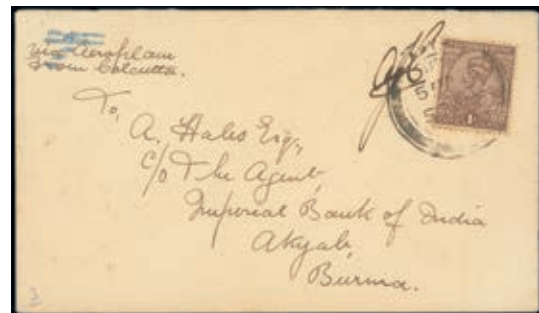 via Aeroplane
from Calcutta.
To,
A. Hales Esq.,
c/o The Agent,
Imperial Bank of India
Akyab,
Burma.
3